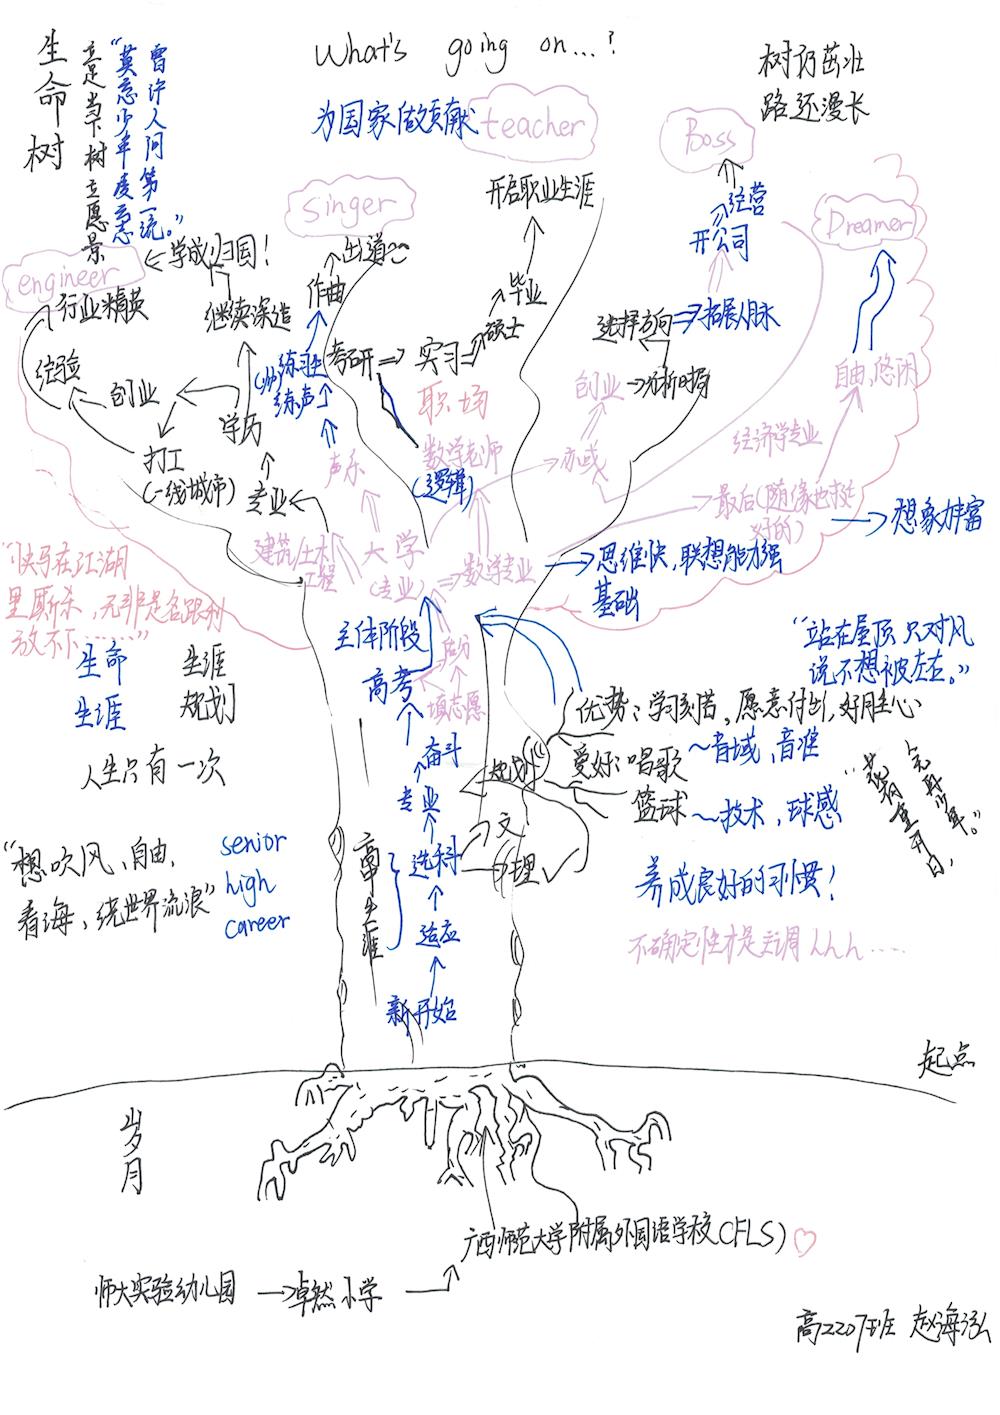 What's going on...?
生命树
立足当下树立愿景
"曾许人间第一流。"
"莫忘少年凌云志
树仍茁壮
路还漫长
为国家做贡献
teacher
Boss
singer
Dreamer
engineer
开启职业生涯
经营
开公司
学成归国!
出道~
行业精英
继续深造
作曲
毕业
硕士
选择方向
拓展人脉
考研
实习
经验
创业
练习生
练声
职场
创业
分析时局
自由,悠闲
学历
打工
(一线城市)
专业
声乐
数学老师
(逻辑)
亦或
经济学专业
最后(随缘也挺
好的)
想象力丰富
建筑/土木
工程
大学
(专业)
数学专业
思维快,联想能力强
基础
"快马在江湖
里厮杀,无非是名跟利
放不下……"
主体阶段
高考
填志愿
"站在屋顶 只对风
说不想被左右。"
生命
生涯
生涯
规划
人生只有一次
优势:学习刻苦、愿意付出,好胜心
爱好:唱歌
~音域,音准
篮球
~技术,球感
规划
"花有重开日,
无再少年。"
奋斗
专业
选科
文
理
适应
新开始
高中生涯
养成良好的习惯!
不确定性才是主调 ……
"想吹风、自由,
看海、绕世界流浪"
senior
high
career
起点
岁月
广西师范大学附属外国语学校(FLS)
师大实验幼儿园
卓然小学
高2207班 赵海泓